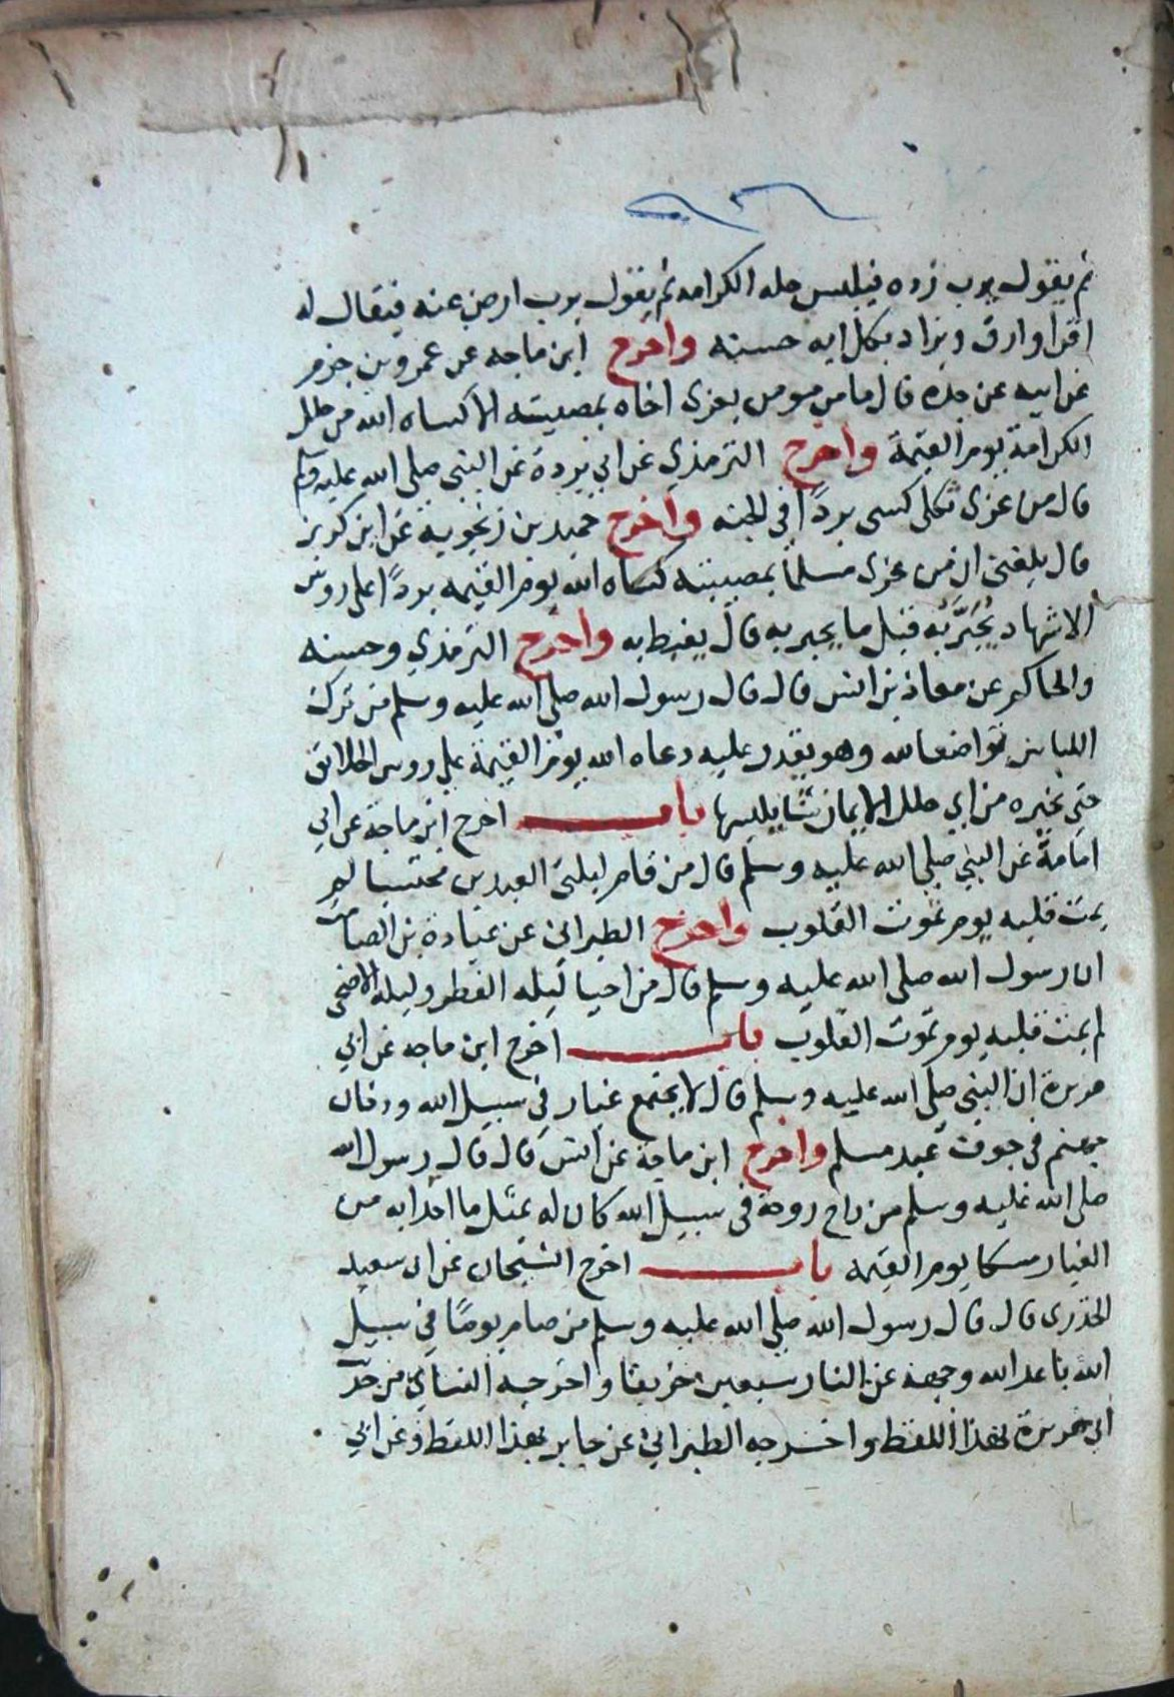 ثم يقول يرب زده فيلبس حله الكرامه ثم يقول يرب ارض عنه فيقال له
اقرا وارق ويزاد بكل ايه حسنه واخرج ابن ماجه عن عمرو بن حزم
عن ابيه عن جده قال ما من مومن يعزى اخاه بمصيبته الا كساه الله من حلل
الكرامة يوم القيمة واخرج الترمذي عن ابي بردة عن النبي صلى الله عليه وسلم
قال من عزى ثكلى كسى بردًا في الجنه واخرج حميد بن زنجوية عن ابن كريز
قال بلغنى ان من عزى مسلما بمصيبته كساه الله يوم القيمه بردًا على روس
الاشهاد يُحَبَّر به قيل ما يحبر به قال يغبط به واخرج الترمذي وحسنه
والحاكم عن معاذ بن انس قال قال رسول الله صلى الله عليه وسلم من ترك
اللباس تواضعا لله وهو يقدر عليه دعاه الله يوم القيمة على روس الخلائق
حتى يخيره من اي حلل الايمان شا يلبسها باب اخرج ابن ماجة عن ابي
امامة عن النبي صلى الله عليه وسلم قال من قام ليلتى العيدين محتسبا لم
يمت قلبه يوم تموت القلوب واخرج الطبراني عن عبادة بن الصامت
ان رسول الله صلى الله عليه وسلم قال من احيا ليله الفطر وليله الاضحى
لم يمت قلبه يوم تموت القلوب باب اخرج ابن ماجه عن ابي
هريرة ان النبي صلى الله عليه وسلم قال لا يجتمع غبار في سبيل الله ودخان
جهنم في جوف عبد مسلم واخرج ابن ماجة عن انس قال قال رسول الله
صلى الله عليه وسلم من راح روحة في سبيل الله كان له بمثل ما اصابه من
الغبار مسكا يوم القيمه باب اخرج الشيخان عن ابى سعيد
الخدرى قال قال رسول الله صلى الله عليه وسلم من صام يومًا في سبيل
الله باعد الله وجهه عن النار سبعين خريفا واخرجه النسائي من حدّ
ابي هريرة بهذا اللفظ واخرجه الطبراني عن جابر بهذا اللفظ وعن ابي